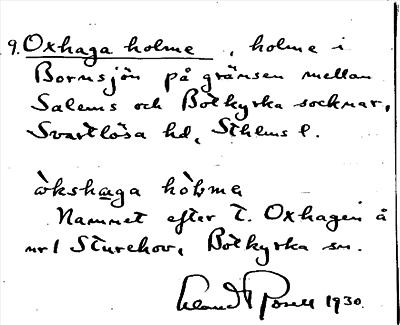 9. Oxhaga holme, holme i
Bornsjön på gränsen mellan
Salems och Botkyrka socknar,
Svartlösa hd, Sthlms l.
òkshaga hòlme
Namnet efter t. Oxhagen å
nr 1 Sturehov, Botkyrka sn.
1930.